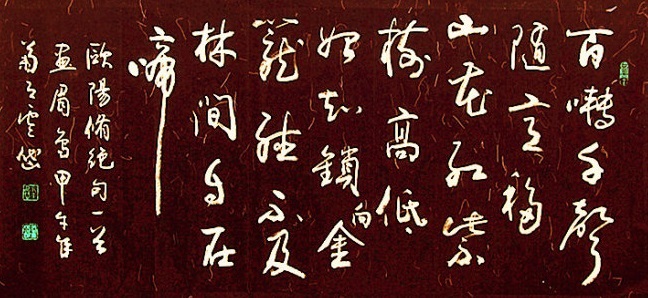 百囀千聲
隨意移
山花紅紫
樹高低
始知鎖向金
籠聽不及
林間自在
啼
歐陽脩絕句一首
畫眉鳥甲午年